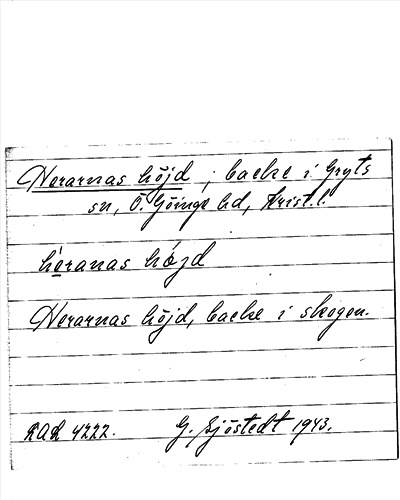 Herarnas höjd; backe i Gryts
sn, Ö. Göinge hd, Krist. l.
hèranas hö́jd
Herarnas höjd, backe i skogen.
RAÄ 4222. G. Sjöstedt 1943.